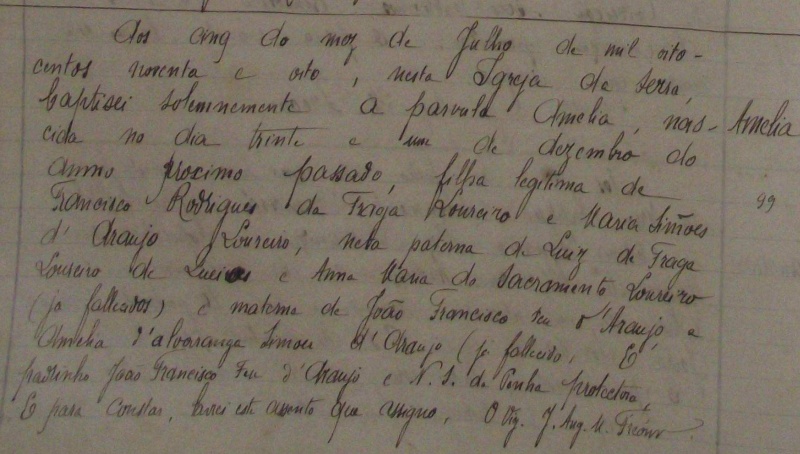 Aos cinq do mez de Julho de mil oito-
centos noventa e oito, nesta Igreja da Serra,
baptisei solemnemente a parvula Amelia, nas- Amelia
cida no dia trinte e um de dezembro do
anno proximo passado, filha legitima de
Francisco Rodrigues da Fraga Loureiro e Maria Simões 99
d'Araujo Loureiro, neta paterna de Luiz da Fraga
Loureiro de e Anna Maria do Sacramento Loureiro
(ja fallecidos) e materna de João Francisco d'Araujo e
Amelia d'Alvarenga d'Araujo (ja fallecido, E'
padrinho João Francisco d'Araujo e N. S. da Penha protectora,
E para constar, lavrei este assento que assigno, O Vig. J. Aug. M.